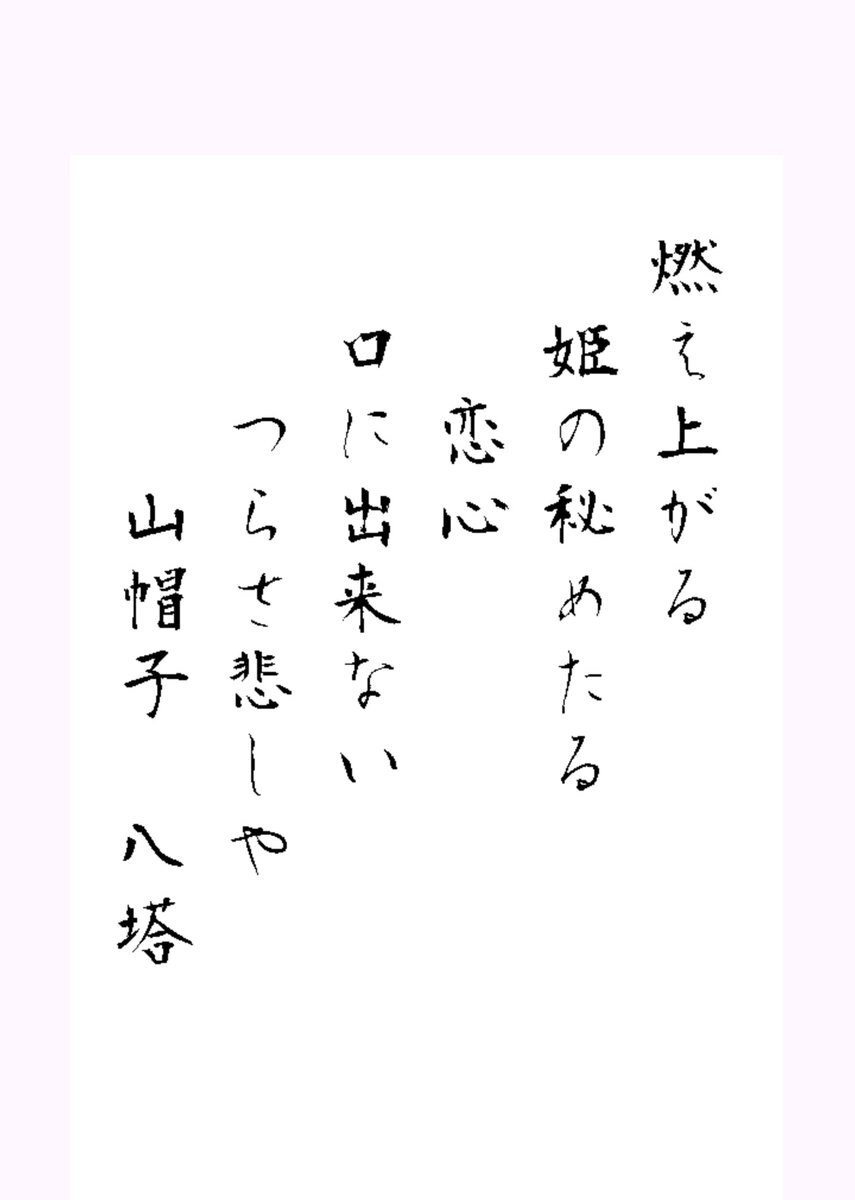 燃え上がる
姫の秘めたる
恋心
口に出来ない
つらさ悲しや
山帽子　八塔